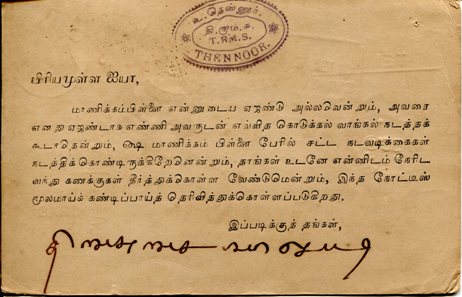 உ. தென்னூர்.
தி. மு. ம. சு.
T. RM. S.
THENNOOR.
பிரியமுள்ள ஐயா,
மாணிக்கம்பிள்ளை என்னுடைய ஏஜண்டு அல்லவென்றும், அவரை
எனது ஏஜண்டாக எண்ணி அவருடன் எவ்வித கொடுக்கல் வாங்கல் நடத்தக்
கூடாதென்றும், ஷை மாணிக்கம் பிள்ளை பேரில் சட்ட நடவடிக்கைகள்
நடத்திக்கொண்டிருக்கிறேனென்றும், தாங்கள் உடனே என்னிடம் நேரிட
வந்து கணக்குகள் தீர்த்துக்கொள்ள வேண்டுமென்றும், இந்த நோட்டீஸ்
மூலமாய்க் கண்டிப்பாய்த் தெரிவித்துக்கொள்ளப்படுகிறது.
இப்படிக்குத் தங்கள்,